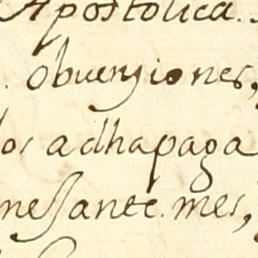 Apostolica.
. obuenziones,
os adhapaga
nessante. mes,